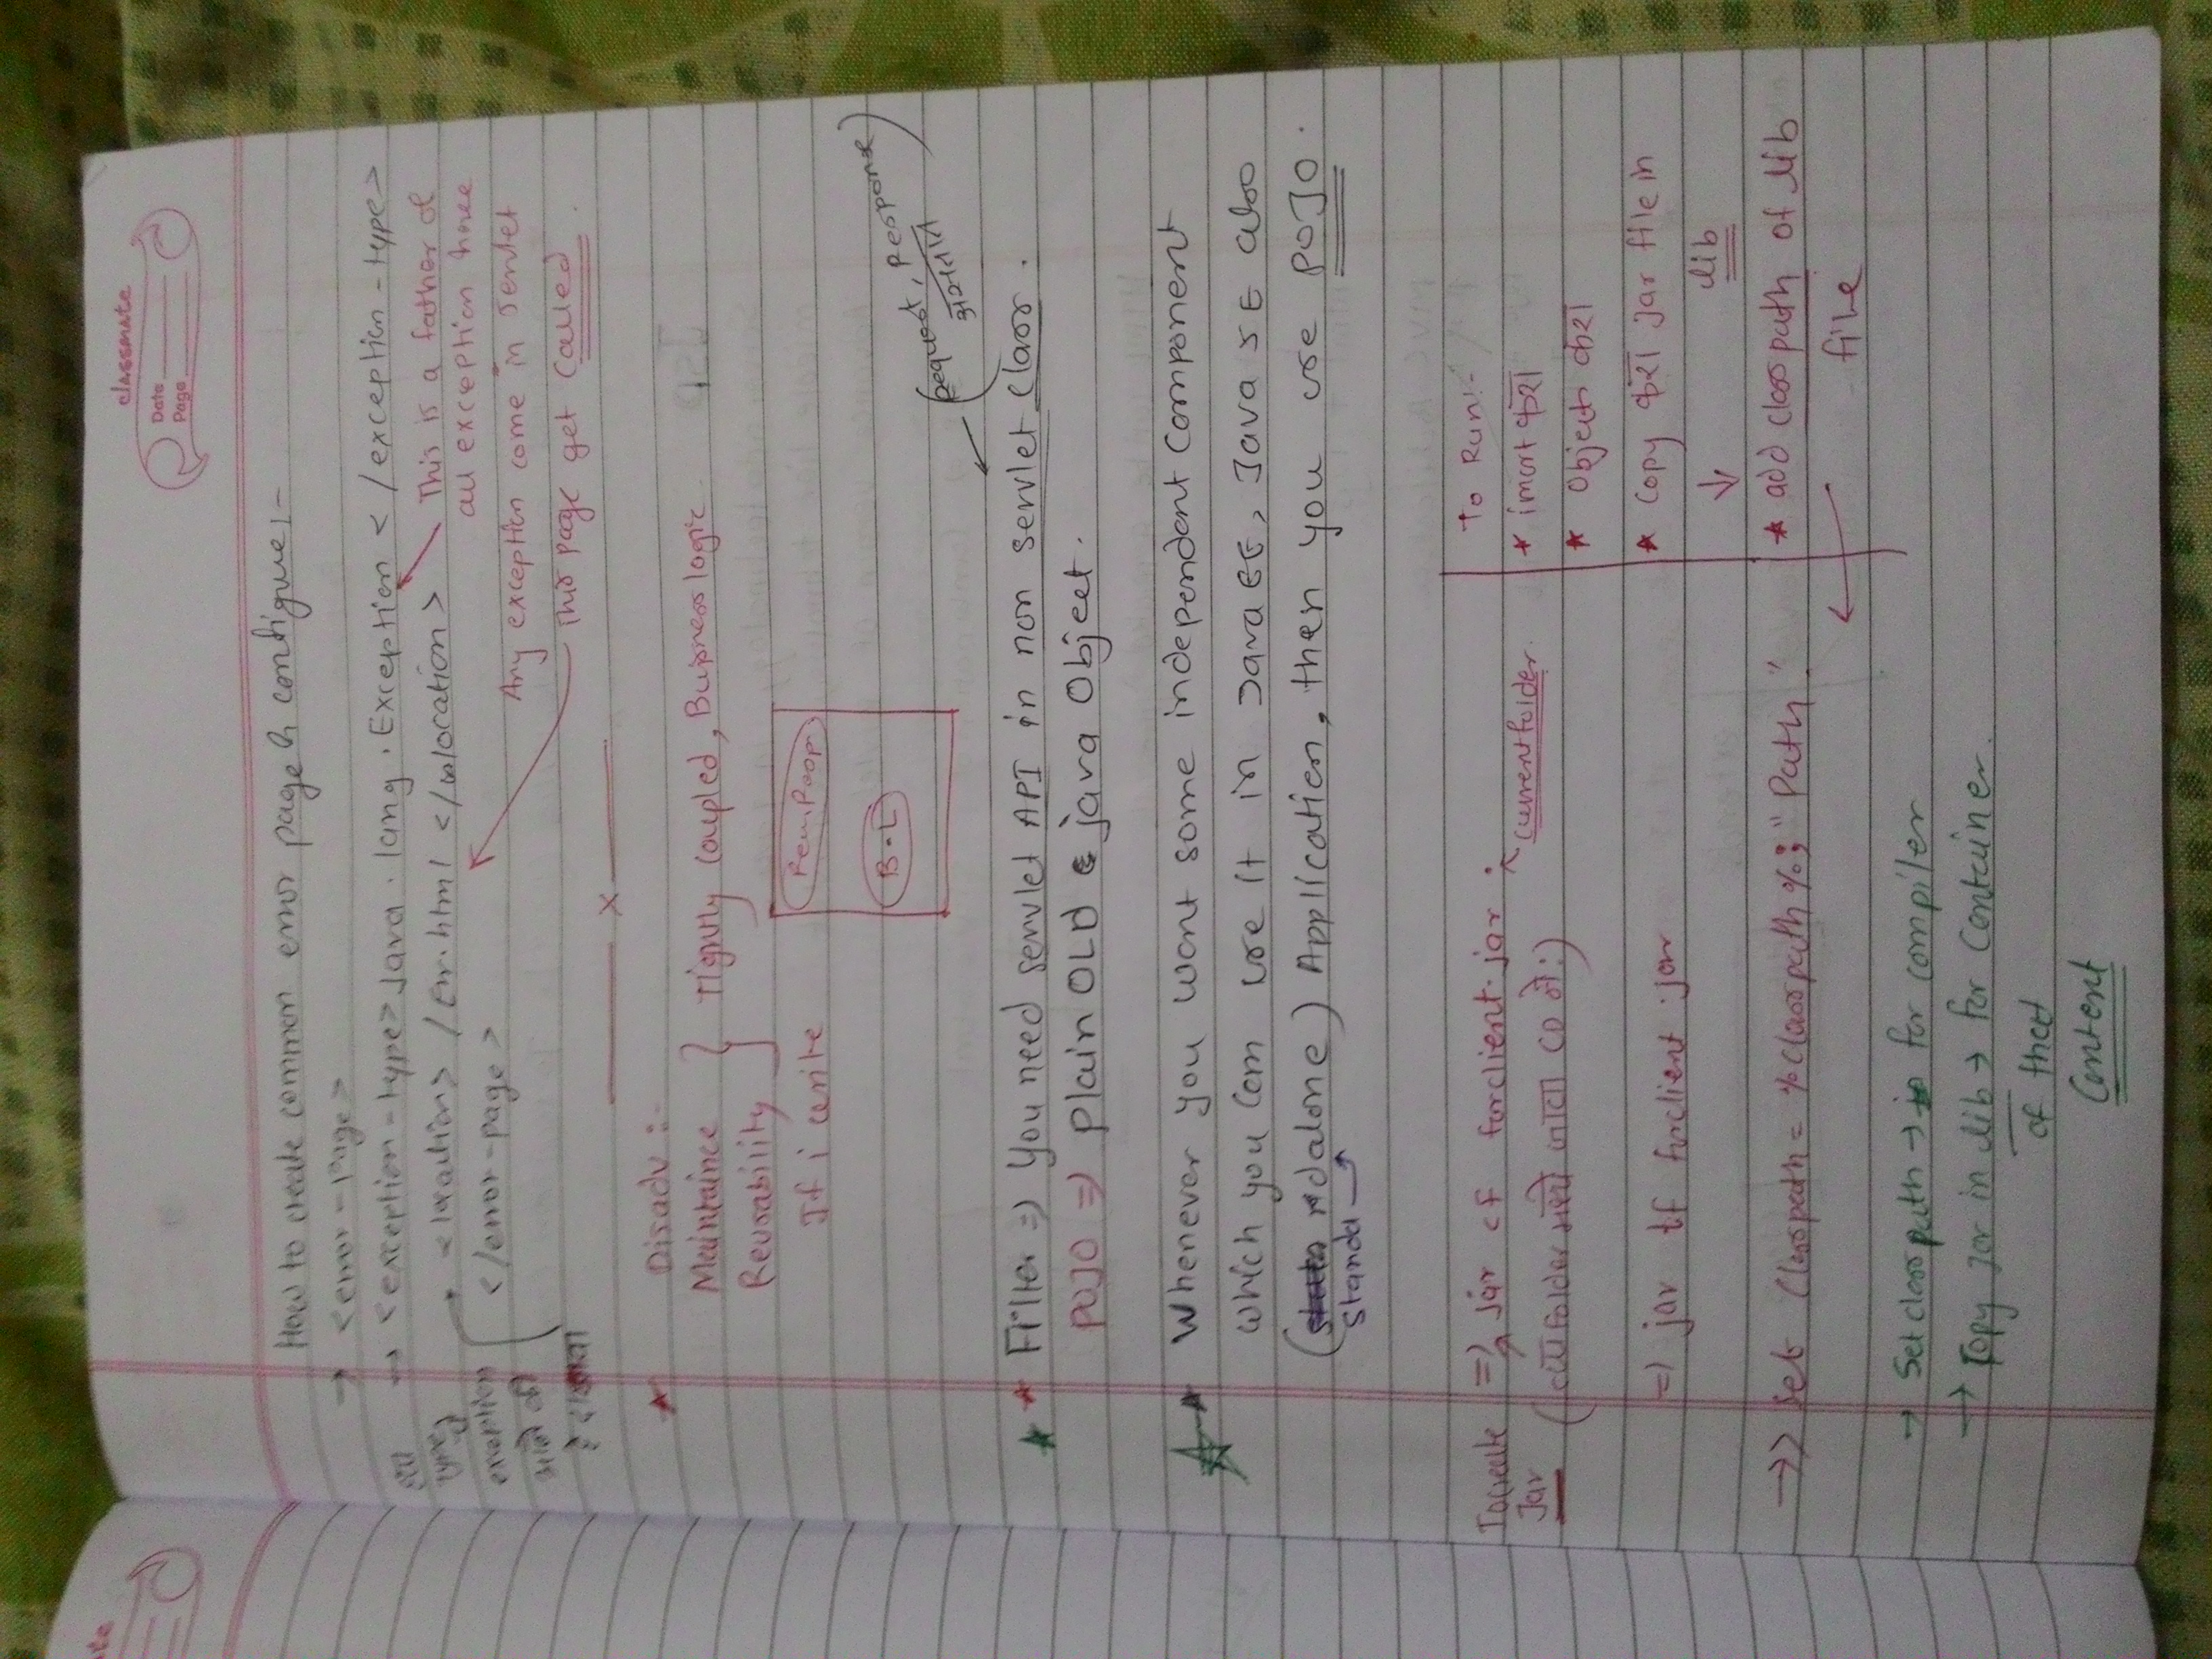 classmate
Date
Page
How to create common error page & configure:-
→ <error-Page>
→ <exception-type> Java.lang.Exception </exception-type>
<location> /Err.html </location>
</error-page>
type
exception
This is a father of
all exception
Any exception come in servlet
This page get called
x
Disadv :-
Maintaince
Reusability
Tightly coupled, Business logic
If i write
B.L
(Request, Response)
असतात
Filter => You need servlet API in non servlet class.
POJO => Plain OLD java Object.
Whenever you want some independent component
which you can use it in Java EE, Java SE also
(ndalone) Application, then you use POJO.
Standa
To create
Jar
=> Jar cf forclient.jar .
currentfolder.
folder मध्ये
=> jar tf forclient.jar
→> Set Classpath = %classpath%; "Path"
To Run:-
* imort करा
* Object करा
* Copy करा Jar file in
lib
* add classpath of lib
file
→ Set classpath → for compiler
→ Copy Jar in lib → for Container.
of that
Content